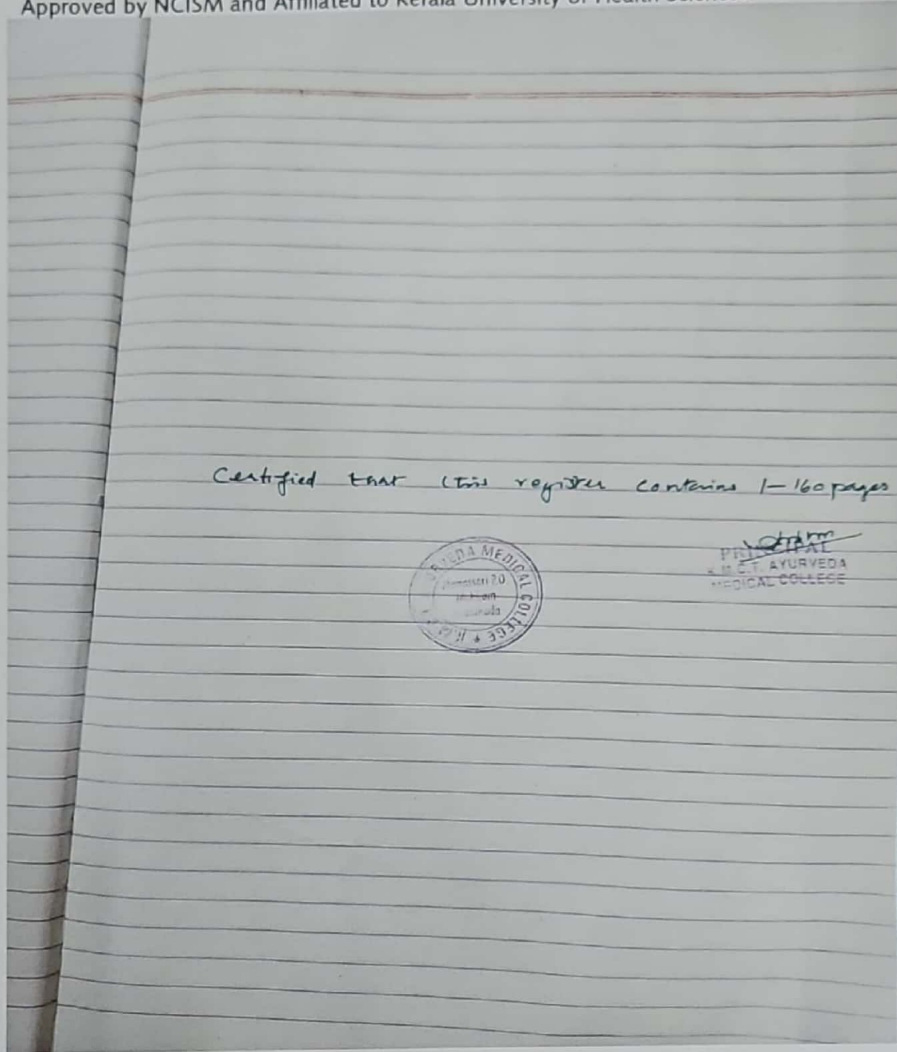 Approved by NCISM and Affiliated to Kerala University of Health
Certified that this register contains 1-160 pages
MEDICAL COLLEGE
PRINCIPAL
K.M.C.T. AYURVEDA
MEDICAL COLLEGE